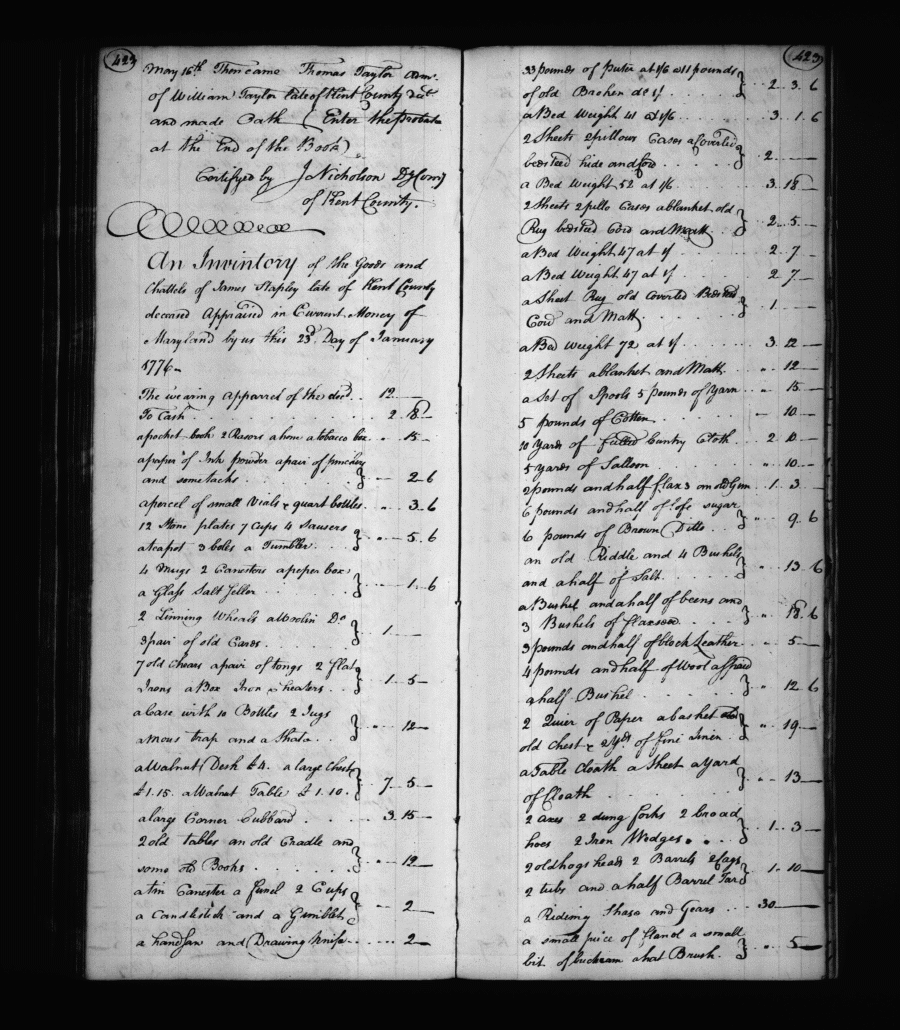 423
May 16th Then came Thomas Taylor Adm.
of William Taylor late of Kent County decd
and made Oath (Enter the probate
at the End of the Book)
Certifyed by J Nicholson Dy Com'y
of Kent County.
An Invintory of the Goods and
Chattels of James Stapley late of Kent County
deceased Appraised in Current Money of
Maryland by us this 23d Day of January
1776
The wearing Apparrel of the decd. 12
To Cash 2 18
a pocket book 2 Rasors a hone a tobacco box " 15
a paper of Ink powder a pair of pinchers
and some tacks } 2 6
a parcel of small Vials & quart bottles " 3 6
12 Stone plates 7 Cups 4 Sausers
a teapot 3 boles a Tumbler } " 5 6
4 Mugs 2 Canesters a peper box
a Glass Salt Seller } " 1 6
2 Linning Wheals a Woolin Do
3 pair of old Cards } 1
7 old Chears a pair of tongs 2 flat
Irons a Box Iron & heaters } 1 5
a Case with 10 Bottles 2 Jugs
a Mous trap and a } " 12
a Walnut Desk £4. a large Chest
£1.15. a Walnut Table £1.10. } 7 5
a large Corner Cubbard 3 15
2 old tables an old Cradle and
some old Books } " 12
a tin Canester a funel 2 Cups
a Candlestick and a Gimblet } " 2
a handsaw and Drawing Knife 2
423
33 pounds of Puter at 1/6 & 11 pounds
of old Broken do 1/ } 2 3 6
a Bed Weight 41 at 1/6 3 1 6
2 Sheets 2 pillows Cases a Coverled
bedsteed hide and Cord } 2
a Bed Weight 52 at 1/6 3 18
2 Sheets 2 pillo Cases a blanket old
Rug bedsteed Cord and Matt } 2 5
a Bed Weight 47 at 1/ 2 7
a Bed Weight 47 at 1/ 2 7
a Sheet Rug old Coverled Bedsteed
Cord and Matt } 1
a Bed Weight 72 at 1/ 3 12
2 Sheets a blanket and Matt " 12
a Set of Spools 5 pounds of Yarn " 15
5 pounds of Cotton 10
10 Yards of fulled Cuntry Cloth 2 10
5 yards of " 10
2 pounds and half flax 3 an old Gun 1 3
6 pounds and half of lofe sugar
6 pounds of Brown Ditto } " 9 6
an old Riddle and 4 Bushels
and a half of Salt } " 13 6
a Bushel and a half of beens and
3 Bushels of flaxseed } " 18 6
3 pounds and half of block Leather " 5
4 pounds and half of Wool
a half Bushel } " 12 6
2 Quier of Paper a basket
old Chest & 2 Yds of fine linen } " 19
a Table Cloath a Sheet a yard
of Cloath } " 13
2 axes 2 dung forks 2 broad
hoes 2 Iron Wedges } 1 3
2 old hogs heads 2 Barrels 2
2 tubs and a half Barrel Tar } 1 10
a Rideing Shase and Gears 30
a small piece of flanel a small
bit of buckram a hat Brush } " 5